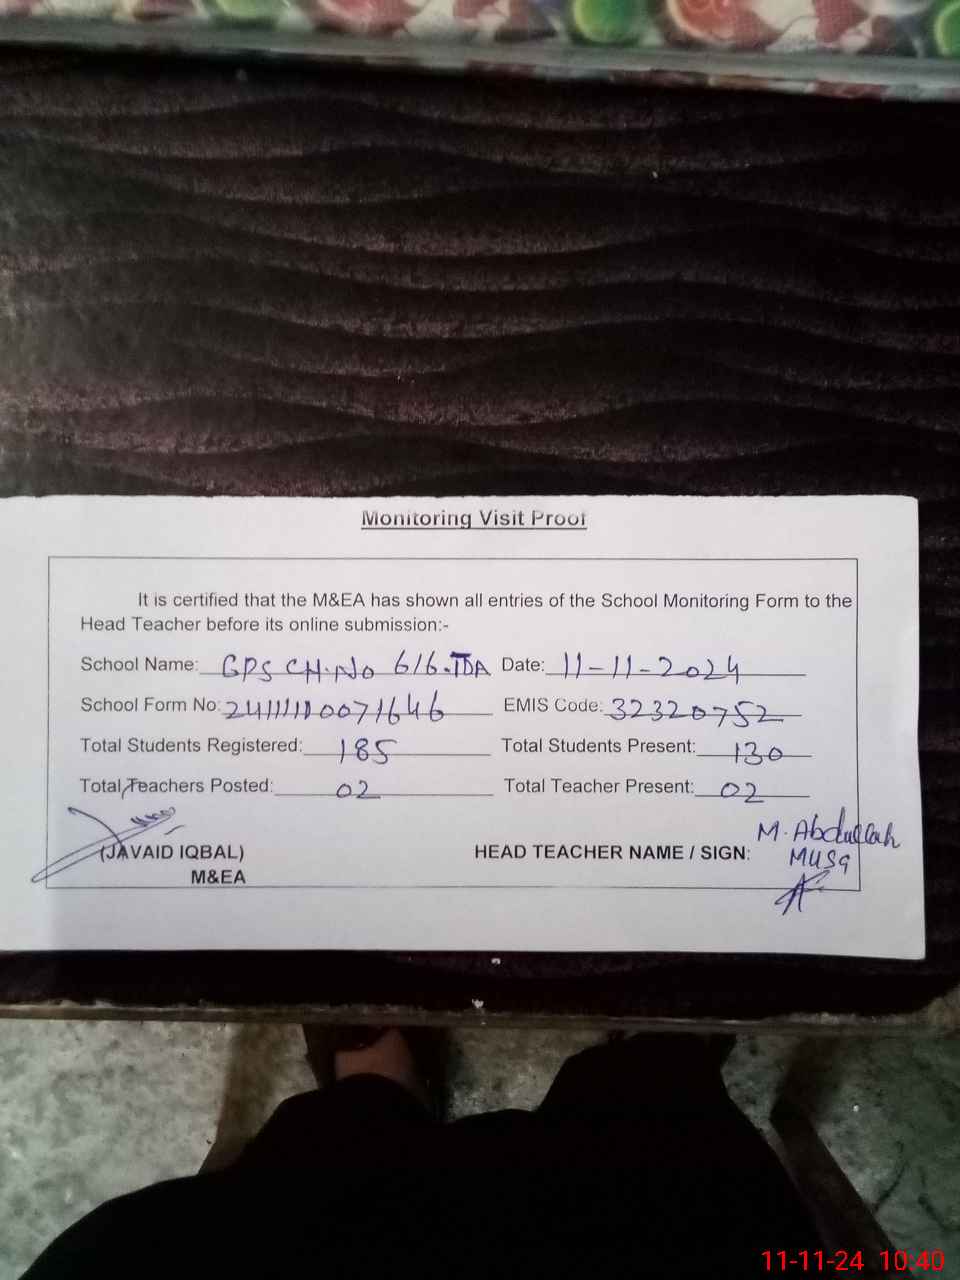 Monitoring Visit Proof
It is certified that the M&EA has shown all entries of the School Monitoring Form to the
Head Teacher before its online submission:-
School Name: GPS CH.No 616.TDA Date: 11-11-2024
School Form No: 24111110071646 EMIS Code: 32320752
Total Students Registered: 185 Total Students Present: 130
Total Teachers Posted: 02 Total Teacher Present: 02
(JAVAID IQBAL) HEAD TEACHER NAME / SIGN: M. Abdullah
M&EA
11-11-24 10:40